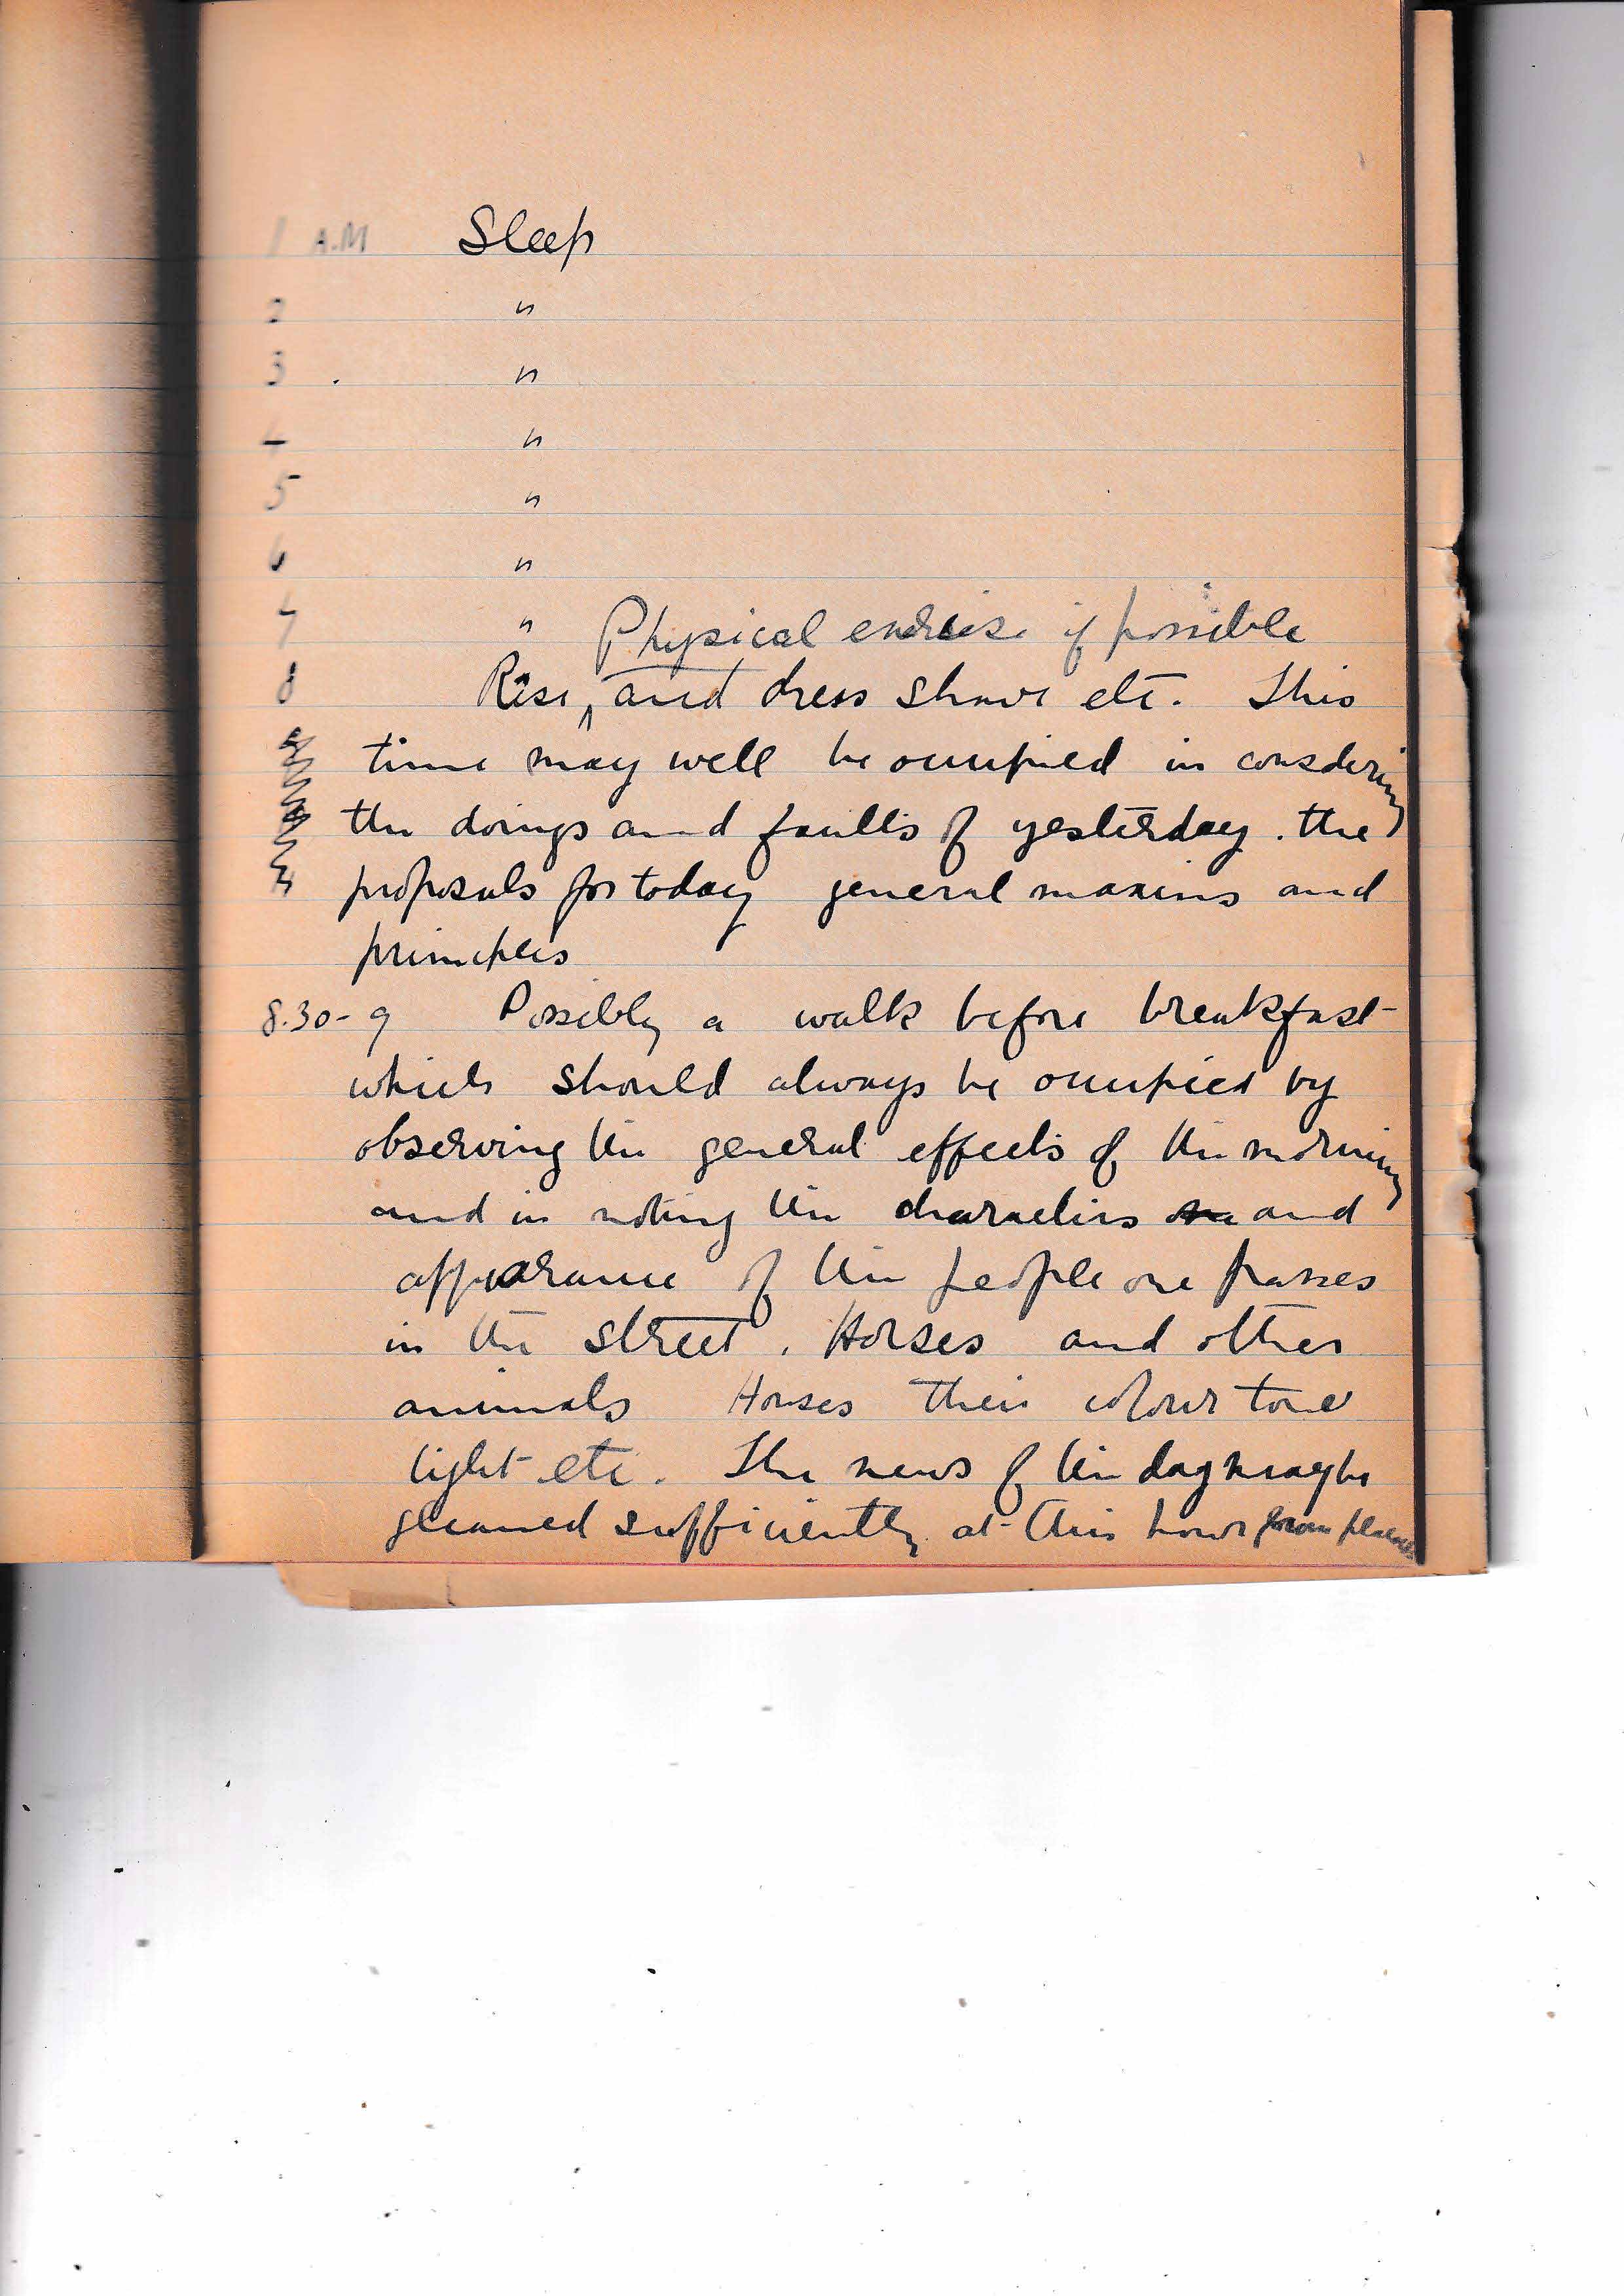 1 A.M Sleep
2 "
3 "
4 "
5 "
6 "
7 " Physical exercise if possible
8 Rise, and dress shave etc. This
time may well be occupied in considering
the doings and faults of yesterday. the
proposals for today general maxims and
principles
8.30-9 Possibly a walk before breakfast
which should always be occupied by
observing the general effects of the morning
and in noting the characters and
appearance of the people one passes
in the street. Horses and other
animals Houses their colour tone
light etc. The news of the day may be
gleaned sufficiently at this hour from